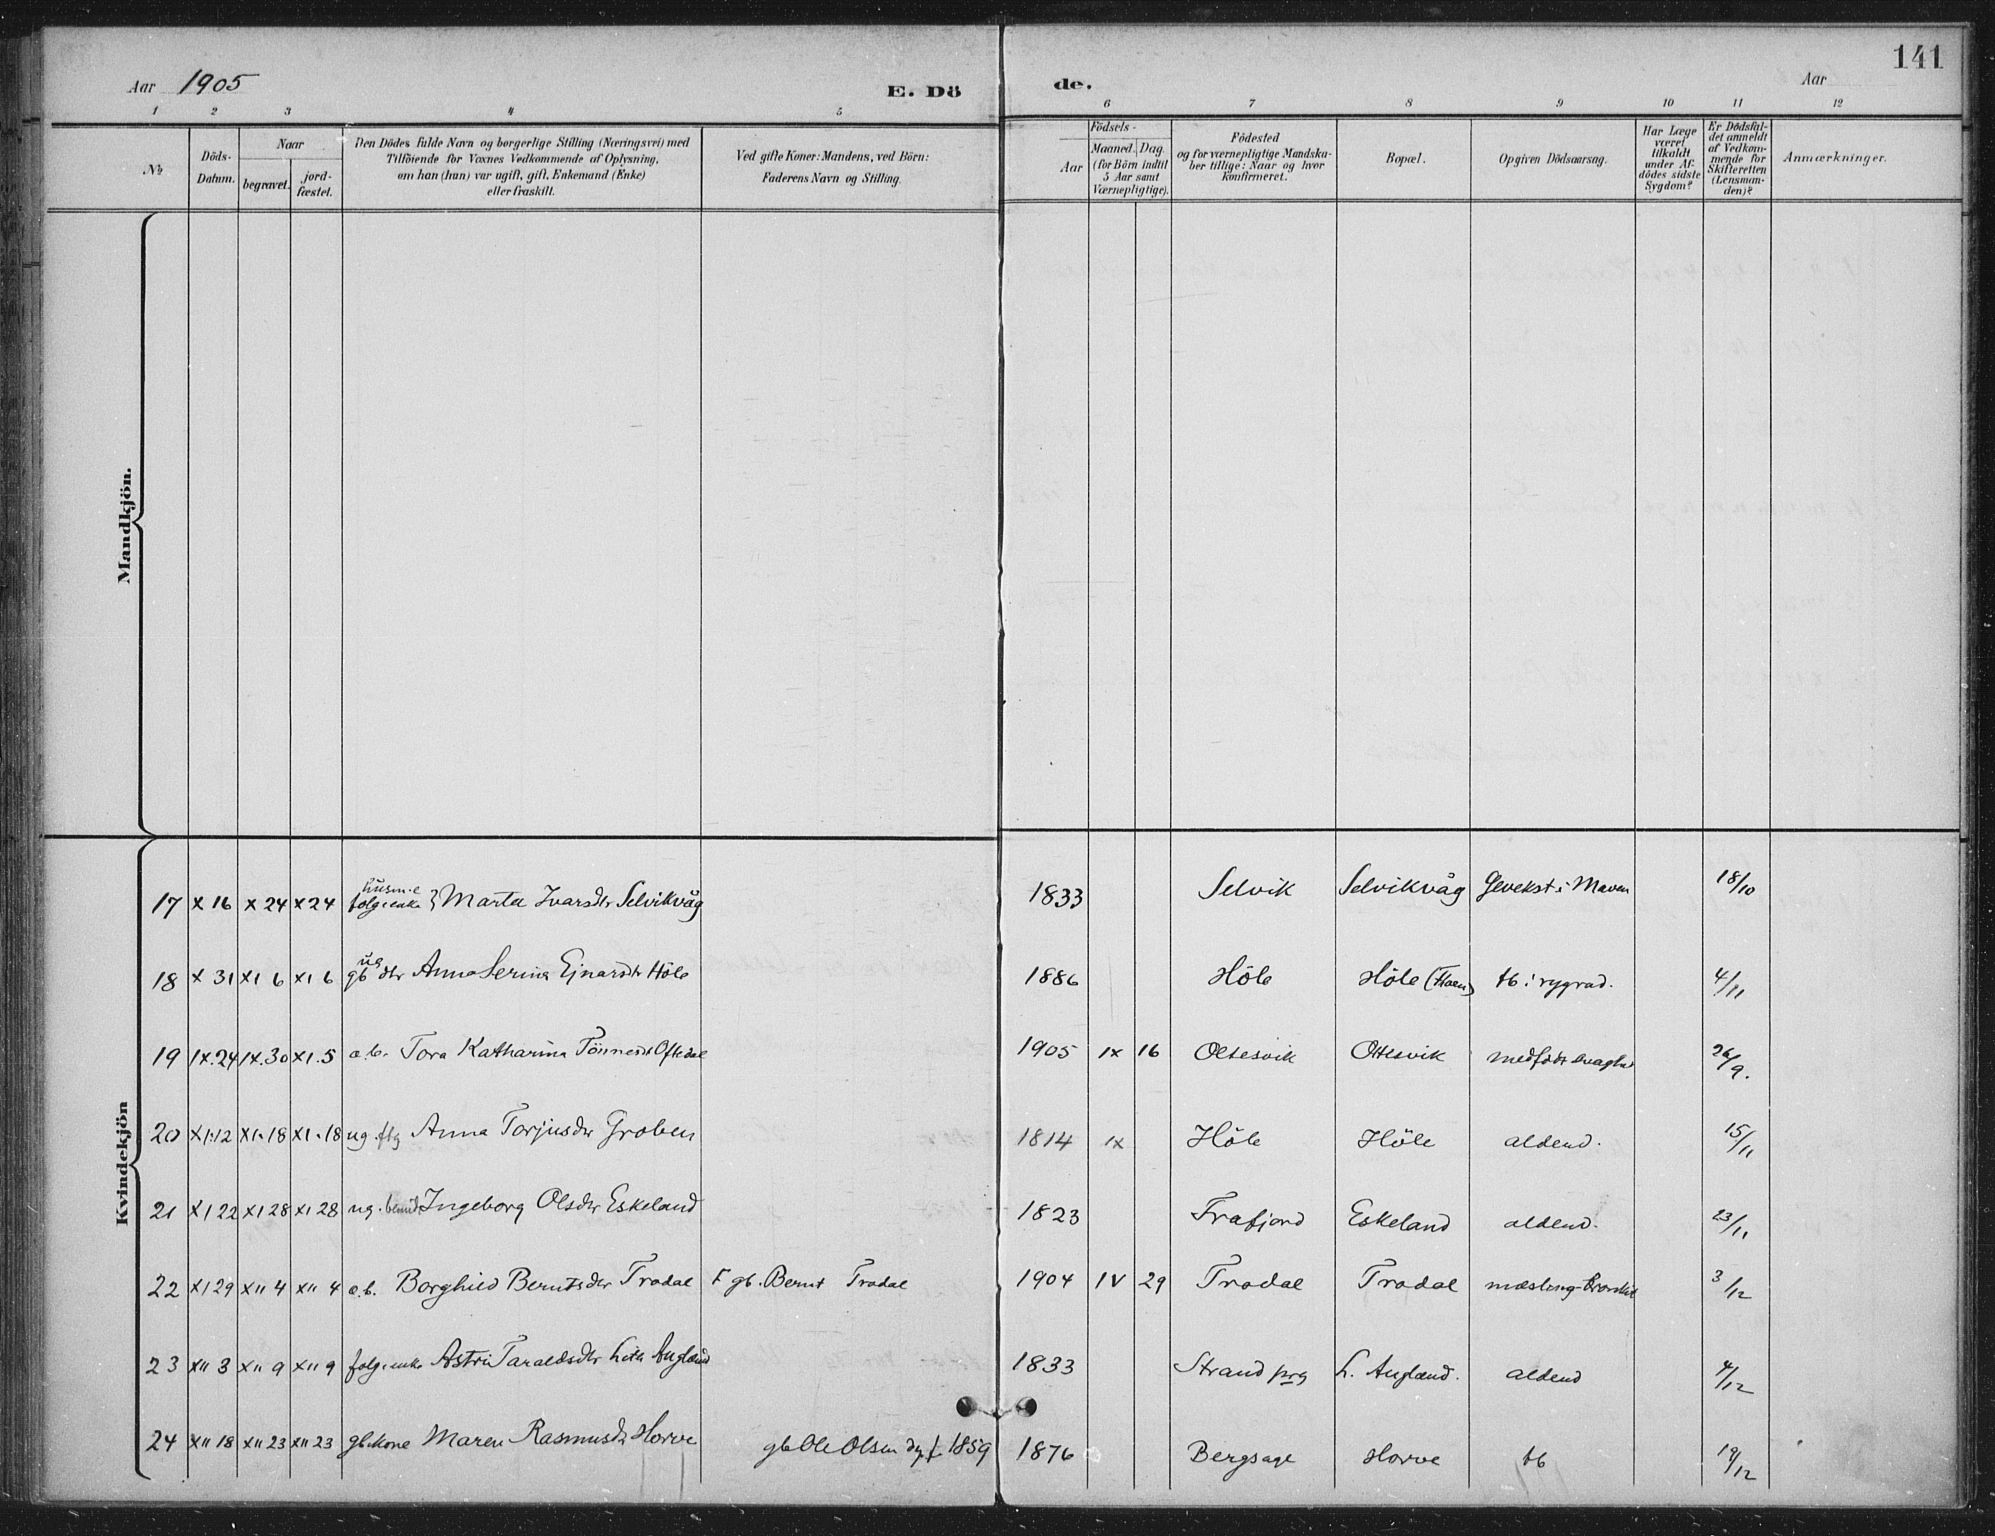 141
Aar 1905
E. Dö
de.
Aar
1 2 3 4 5 6 7 8 9 10 11 12
№
Döds-
Datum.
Naar
begravet.
jord-
fæstet.
Den Dödes fulde Navn og borgerlige Stilling (Næringsvei) med
Tilföiende for Voxnes Vedkommende af Oplysning,
om han (hun) var ugift, gift, Enkemand (Enke)
eller fraskilt.
Ved gifte Koner: Mandens, ved Börn:
Faderens Navn og Stilling.
Födsels-
Aar
Maaned.
Dag.
(for Börn indtil
5 Aar samt
Værnepligtige).
Födested
og for værnepligtige Mandska-
ber tillige: Naar og hvor
konfirmeret.
Bopæl.
Opgiven Dödsaarsag.
Har Læge
været
tilkaldt
under Af-
dödes sidste
Sygdom?
Er Dödsfal-
det anmeldt
af Vedkom-
mende for
Skifteretten
(Lensman-
den)?
Anmærkninger.
Mandkjön.
Kvindekjön
17 X 16 X 24 X 24 husm.e folgeenke } Marta Ivarsdtr Selvikvåg 1833 Selvik Selvikvåg Gevekst i Maven 18/10
18 X 31 XI 6 XI 6 ug gb dtr Anna Serina Ejnarsdtr Höle 1886 Höle Höle tb i rygrad. 4/11
19 IX.24 IX.30 XI.5 e.b. Tora Katharina Tönnesdtr Oftedal 1905 IX 16 Oltesvik Oltesvik medfödt svaghet 26/9.
20 XI.12 XI.18 XI.18 ug. ftg Anna Torjusdtr Groben 1814 IX Höle Höle aldend. 15/11
21 XI 22 XI 28 XI 28 ug. Ingeborg Olsdtr Eskeland 1823 Frafjord Eskeland aldend. 23/11
22 XI 29 XII 4 XII 4 e.b. Borghild Berntsdtr Trodal F gb. Bernt Trodal 1904 IV 29 Trodal Trodal mæsling- 3/12
23 XII 3 XII 9 XII 9 folgeenke Astri Taraldsdtr Anglænd 1833 Strand prg L. Anglænd. aldend 4/12
24 XII 18 XII 23 XII 23 gb.kone Maren Rasmusdtr Horve gb Ole Olsen 1859 1876 Bergsage Horve tb 19/12